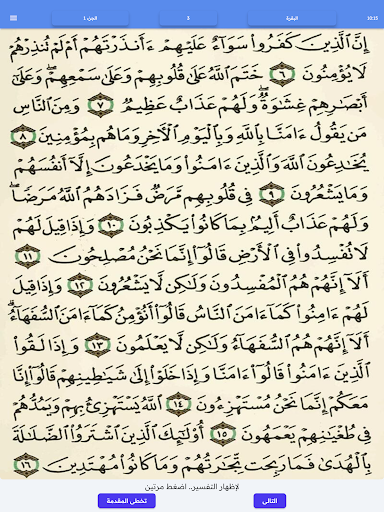 الجزء 1 3 البقرة 10:15
إِنَّ ٱلَّذِينَ كَفَرُوا۟ سَوَآءٌ عَلَيْهِمْ ءَأَنذَرْتَهُمْ أَمْ لَمْ تُنذِرْهُمْ
لَا يُؤْمِنُونَ ٦ خَتَمَ ٱللَّهُ عَلَىٰ قُلُوبِهِمْ وَعَلَىٰ سَمْعِهِمْ ۖ وَعَلَىٰٓ
أَبْصَٰرِهِمْ غِشَٰوَةٌ ۖ وَلَهُمْ عَذَابٌ عَظِيمٌ ٧ وَمِنَ ٱلنَّاسِ
مَن يَقُولُ ءَامَنَّا بِٱللَّهِ وَبِٱلْيَوْمِ ٱلْءَاخِرِ وَمَا هُم بِمُؤْمِنِينَ ٨
يُخَٰدِعُونَ ٱللَّهَ وَٱلَّذِينَ ءَامَنُوا۟ وَمَا يَخْدَعُونَ إِلَّآ أَنفُسَهُمْ
وَمَا يَشْعُرُونَ ٩ فِى قُلُوبِهِم مَّرَضٌ فَزَادَهُمُ ٱللَّهُ مَرَضًا ۖ
وَلَهُمْ عَذَابٌ أَلِيمٌۢ بِمَا كَانُوا۟ يَكْذِبُونَ ١٠ وَإِذَا قِيلَ لَهُمْ
لَا تُفْسِدُوا۟ فِى ٱلْأَرْضِ قَالُوٓا۟ إِنَّمَا نَحْنُ مُصْلِحُونَ ١١
أَلَآ إِنَّهُمْ هُمُ ٱلْمُفْسِدُونَ وَلَٰكِن لَّا يَشْعُرُونَ ١٢ وَإِذَا قِيلَ
لَهُمْ ءَامِنُوا۟ كَمَآ ءَامَنَ ٱلنَّاسُ قَالُوٓا۟ أَنُؤْمِنُ كَمَآ ءَامَنَ ٱلسُّفَهَآءُ ۗ
أَلَآ إِنَّهُمْ هُمُ ٱلسُّفَهَآءُ وَلَٰكِن لَّا يَعْلَمُونَ ١٣ وَإِذَا لَقُوا۟
ٱلَّذِينَ ءَامَنُوا۟ قَالُوٓا۟ ءَامَنَّا وَإِذَا خَلَوْا۟ إِلَىٰ شَيَٰطِينِهِمْ قَالُوٓا۟ إِنَّا
مَعَكُمْ إِنَّمَا نَحْنُ مُسْتَهْزِءُونَ ١٤ ٱللَّهُ يَسْتَهْزِئُ بِهِمْ وَيَمُدُّهُمْ
فِى طُغْيَٰنِهِمْ يَعْمَهُونَ ١٥ أُو۟لَٰٓئِكَ ٱلَّذِينَ ٱشْتَرَوُا۟ ٱلضَّلَٰلَةَ
بِٱلْهُدَىٰ فَمَا رَبِحَت تِّجَٰرَتُهُمْ وَمَا كَانُوا۟ مُهْتَدِينَ ١٦
لإظهار التفسير.. اضغط مرتين
التالي
تخطى المقدمة